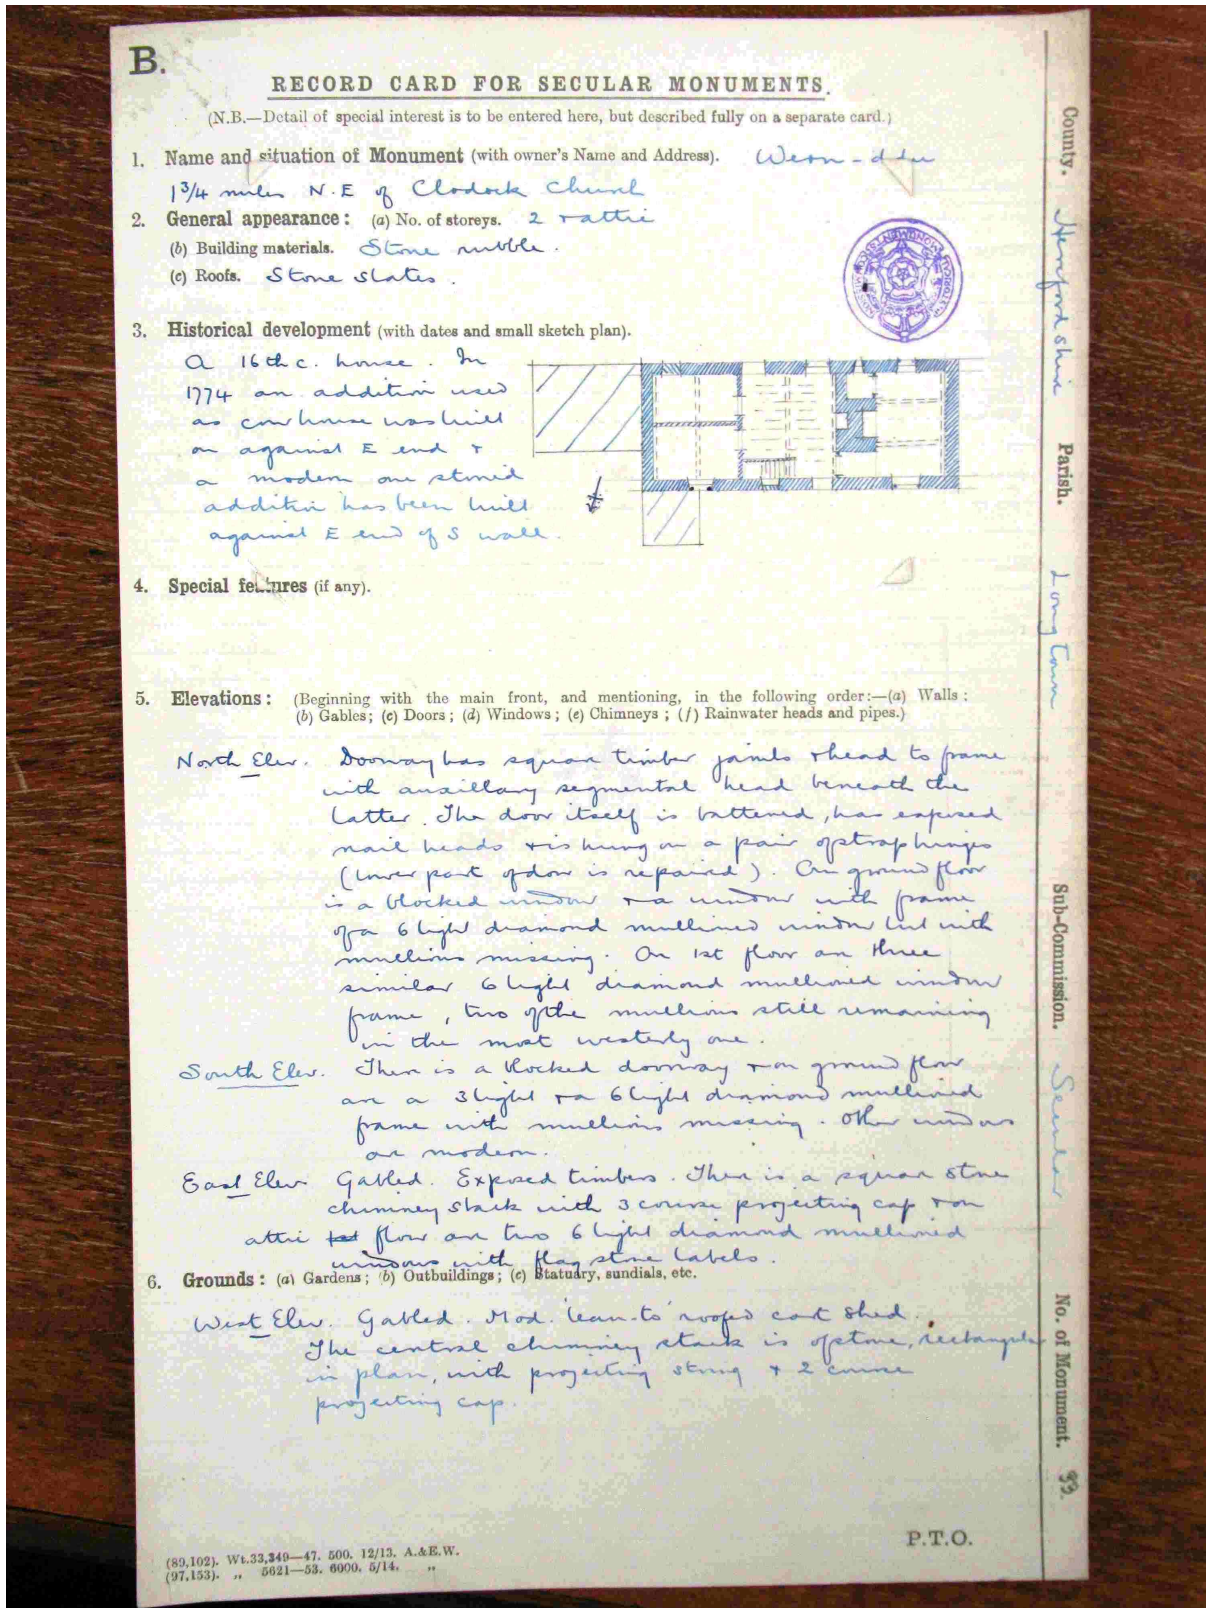 B.
RECORD CARD FOR SECULAR MONUMENTS.
(N.B.—Detail of special interest is to be entered here, but described fully on a separate card.)
1. Name and situation of Monument (with owner's Name and Address). Wern-ddu
1 3/4 miles N.E of Clodock Church
2. General appearance: (a) No. of storeys. 2 + attic
(b) Building materials. Stone rubble.
(c) Roofs. Stone slates.
3. Historical development (with dates and small sketch plan).
A 16th c. house. In
1774 an addition used
as cow house was built
on against E end +
a modern one storied
addition has been built
against E end of S wall.
4. Special features (if any).
5. Elevations: (Beginning with the main front, and mentioning, in the following order:—(a) Walls:
(b) Gables; (c) Doors; (d) Windows; (e) Chimneys; (f) Rainwater heads and pipes.)
North Elev. Doorway has square timber jambs + head to frame
with auxillary segmental head beneath the
latter. The door itself is battened, has exposed
nail heads + is hung on a pair of strap hinges
(lower part of door is repaired). On ground floor
is a blocked window + a window with frame
of a 6 light diamond mullioned window but with
mullions missing. On 1st floor are three
similar 6 light diamond mullioned window
frame, two of the mullions still remaining
in the most westerly one.
South Elev. There is a blocked doorway + on ground floor
are a 3 light + a 6 light diamond mullioned
frame with mullions missing. Other windows
are modern.
East Elev Gabled. Exposed timbers. There is a square stone
chimney stack with 3 course projecting cap + on
attic floor are two 6 light diamond mullioned
windows with flag stone labels.
6. Grounds: (a) Gardens; (b) Outbuildings; (c) Statuary, sundials, etc.
West Elev. Gabled. Mod. 'lean-to' roofed cart shed.
The central chimney stack is of stone, rectangular
in plan, with projecting string + 2 course
projecting cap.
P.T.O.
(89,102). Wt.33,349—47. 500. 12/13. A.&E.W.
(97,153). „ 5621—53. 6000. 5/14. „
County. Herefordshire Parish. Longtown Sub-Commission. Secular No. of Monument. 33.